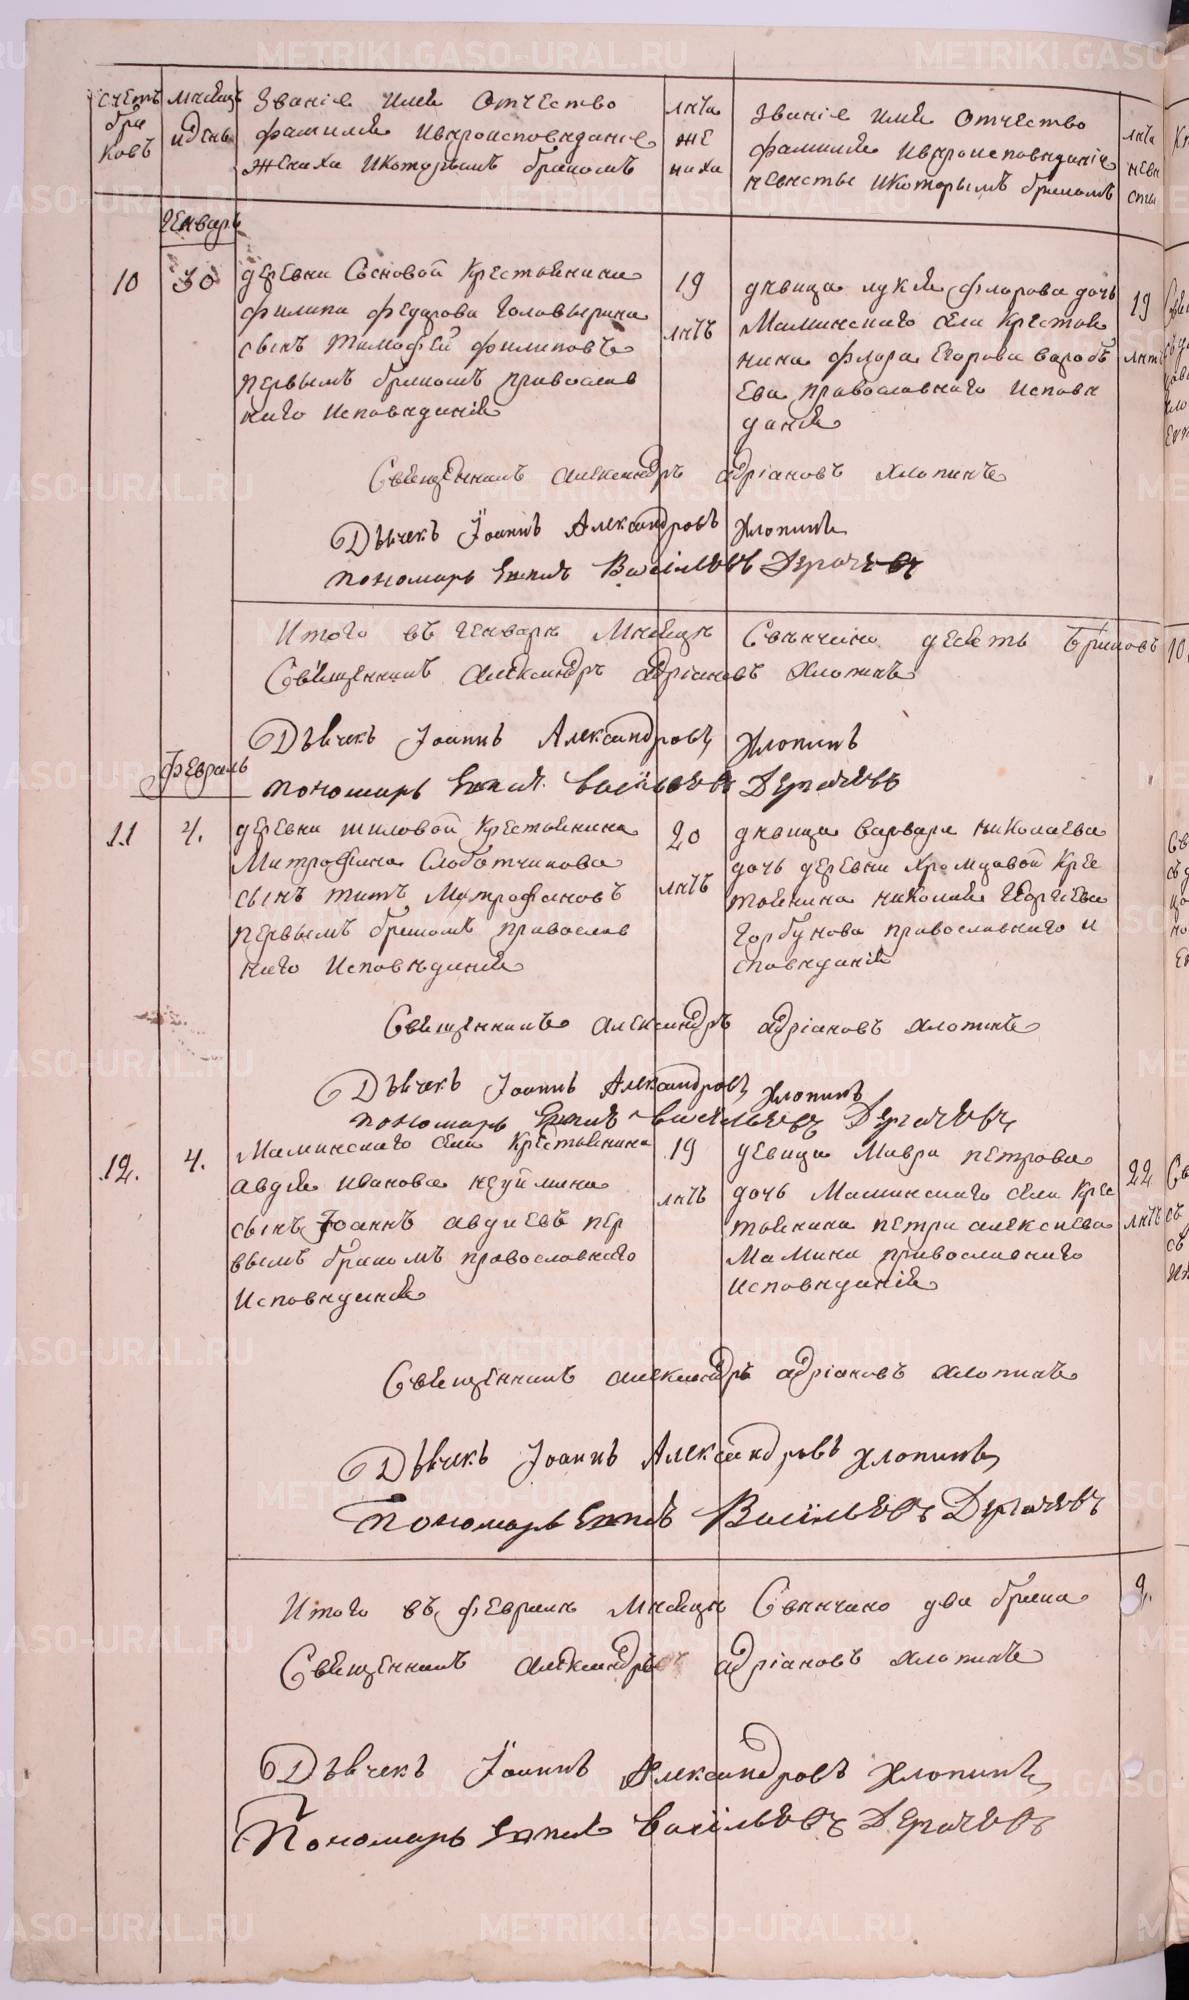 Счетъ браковъ
Мѣсяцъ и день
Званіе имя отчество
фамилія и вѣроисповѣданіе
жениха и которымъ бракомъ
лѣта жениха
Званіе имя отчество
фамилія и вѣроисповѣданіе
невѣсты и которымъ бракомъ
лѣта невѣсты
Генварь
10
30
деревни Сосновой крестьянина
Филипа Федорова Головырина
сынъ Тимофей Филиповъ
первымъ бракомъ православ
наго исповѣданія
19
лѣтъ
дѣвица Лукія Флорова дочь
Маминскаго села крестья
нина Флора Егорова Вароб
ева православнаго исповѣ
данія
19
лѣтъ
Священникъ Александръ Адріановъ Хлопинъ
Дьячекъ Іоаннъ Александровъ Хлопинъ
Пономарь Васильевъ Дергачевъ
Итого въ генварѣ мѣсяцѣ свѣнчано десять браковъ 10
Священникъ Александръ Адріановъ Хлопинъ
Дьячекъ Іоаннъ Александровъ Хлопинъ
Пономарь Васильевъ Дергачевъ
Февраль
11
4.
деревни Шиловой крестьянина
Митрофана Слоботчикова
сынъ Титъ Митрофановъ
первымъ бракомъ православ
наго исповѣданія
20
лѣтъ
дѣвица Варвара Николаева
дочь деревни Хромцовой крес
тьянина Николая Георгіева
Горбунова православнаго и
сповѣданія
Священникъ Александръ Адріановъ Хлопинъ
Дьячекъ Іоаннъ Александровъ Хлопинъ
Пономарь Васильевъ Дергачевъ
12.
4.
Маминскаго села крестьянина
Авдея Иванова Неуймина
сынъ Іоаннъ Авдиевъ пер
вымъ бракомъ православнаго
исповѣданія
19
лѣтъ
девица Мавра Петрова
дочь Маминскаго села крес
тьянина Петра Алексиева
Мамина православнаго
исповѣданія
22
лѣтъ
Священникъ Александръ Адріановъ Хлопинъ
Дьячекъ Іоаннъ Александровъ Хлопинъ
Пономарь Васильевъ Дергачевъ
Итого въ феврале мѣсяцѣ свѣнчано два брака 2.
Священникъ Александръ Адріановъ Хлопинъ
Дьячекъ Іоаннъ Александровъ Хлопинъ
Пономарь Васильевъ Дергачевъ
METRIKI.GASO-URAL.RU